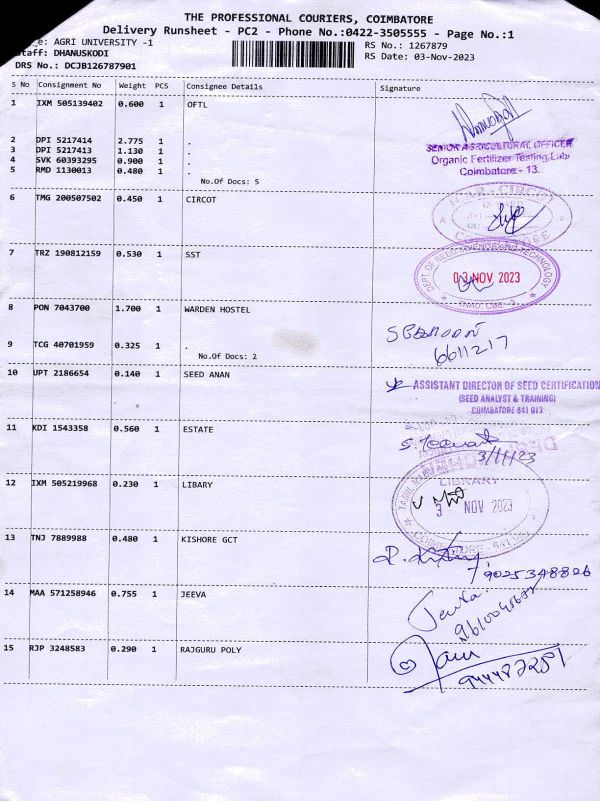 THE PROFESSIONAL COURIERS, COIMBATORE
Delivery Runsheet - PC2 - Phone No.:0422-3505555 - Page No.:1
e: AGRI UNIVERSITY -1 RS No.: 1267879
taff: DHANUSKODI RS Date: 03-Nov-2023
DRS No.: DCJB126787901
S No Consignment No Weight PCS Consignee Details Signature
1 IXM 505139402 0.600 1 OFTL
2 DPI 5217414 2.775 1 .
3 DPI 5217413 1.130 1 .
4 SVK 60393295 0.900 1 .
5 RMD 1130013 0.480 1 .
No.Of Docs: 5
SENIOR AGRICULTURAL OFFICER
Organic Fertilizer Testing Lab
Coimbatore - 13.
6 TMG 200507502 0.450 1 CIRCOT
7 TRZ 190812159 0.530 1 SST
DEPT OF SEED SCIENCE AND TECHNOLOGY
03 NOV 2023
TNAU, CBE - 3
8 PON 7043700 1.700 1 WARDEN HOSTEL
9 TCG 40701959 0.325 1 .
No.Of Docs: 2
6611217
10 UPT 2186654 0.140 1 SEED ANAN
ASSISTANT DIRECTOR OF SEED CERTIFICATION
(SEED ANALYST & TRAINING)
COIMBATORE 641 013
11 KDI 1543358 0.560 1 ESTATE
3/11/23
12 IXM 505219968 0.230 1 LIBARY
LIBRARY
3 NOV 2023
13 TNJ 7889988 0.480 1 KISHORE GCT
9025348826
14 MAA 571258946 0.755 1 JEEVA
15 RJP 3248583 0.290 1 RAJGURU POLY